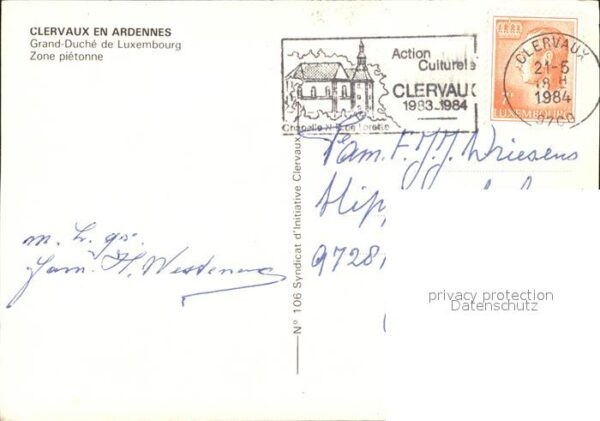 CLERVAUX EN ARDENNES
Grand-Duché de Luxembourg
Zone piétonne
Action
Culturele
CLERVAUX
1983-1984
Chapelle N.D. de Lorette
CLERVAUX
21-5
18 H
1984
9700
LUXEMBOURG
Fam. F. J. J. Driesens
9728
m. h. gr.
Fam. H. Westen
N° 106 Syndicat d'Initiative Clervaux
privacy protection
Datenschutz